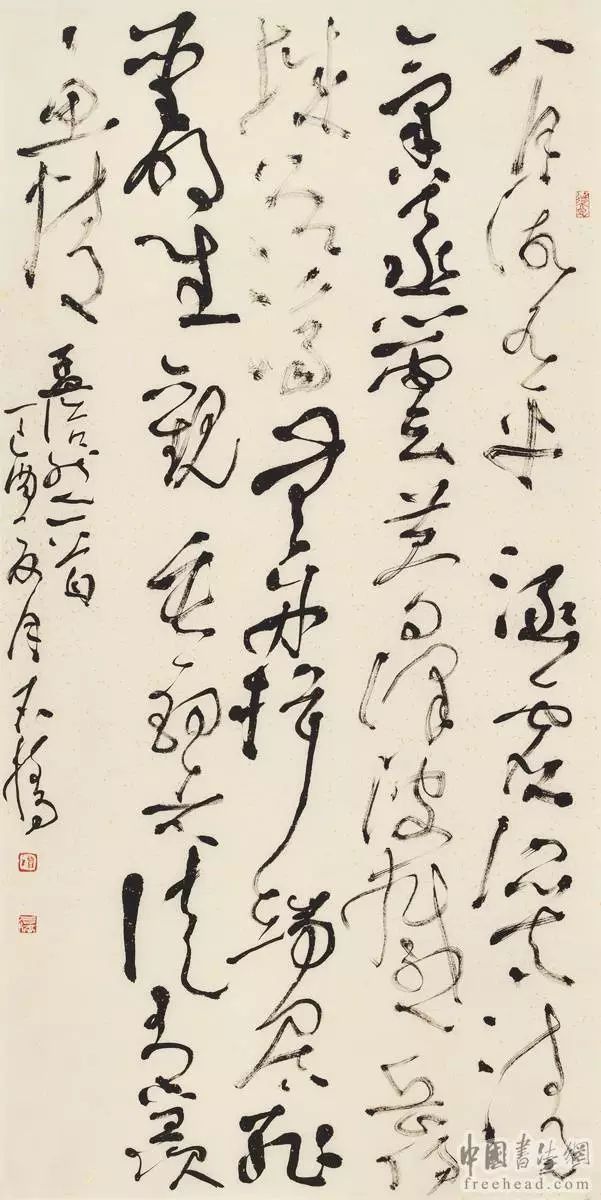 八月湖水平涵虛混太清
氣蒸雲夢澤波撼岳陽
城欲濟無舟楫端居恥
聖明坐觀垂釣者徒有羨
魚情
孟浩然一首
丁酉夏月
中國書法網
freehead.com